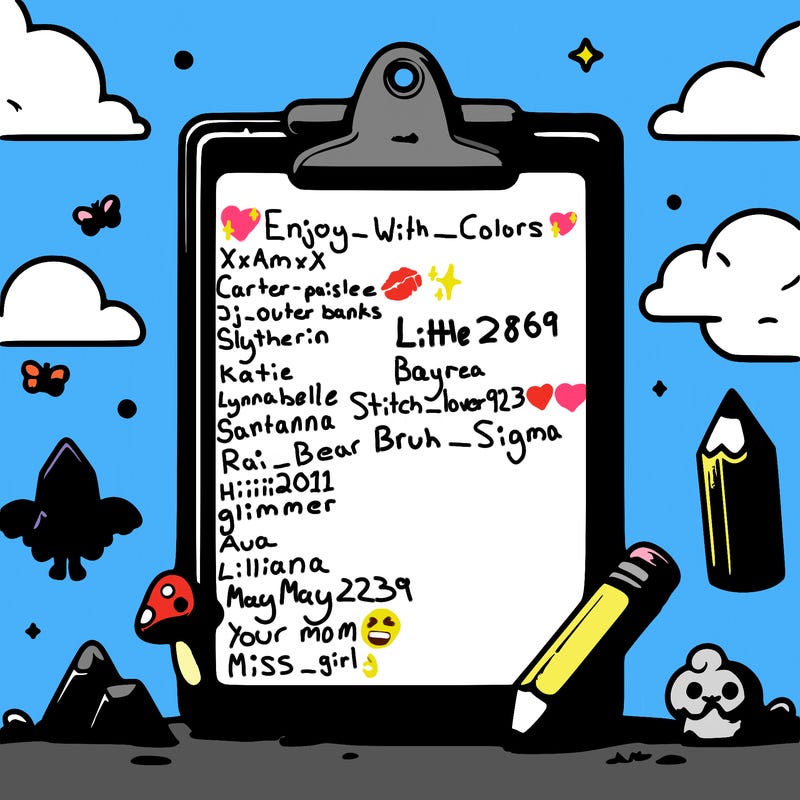 💖Enjoy_With_Colors💖
XxAmxX
Carter-paislee💋✨
Jj_outer banks
Slytherin
Katie
Lynnabelle
Santanna
Rai_Bear
Hiiiii2011
glimmer
Ava
Lilliana
MayMay2239
Your mom😆
Miss_girl👌
Little2869
Bayrea
Stitch_lover923❤️🩷
Bruh_Sigma